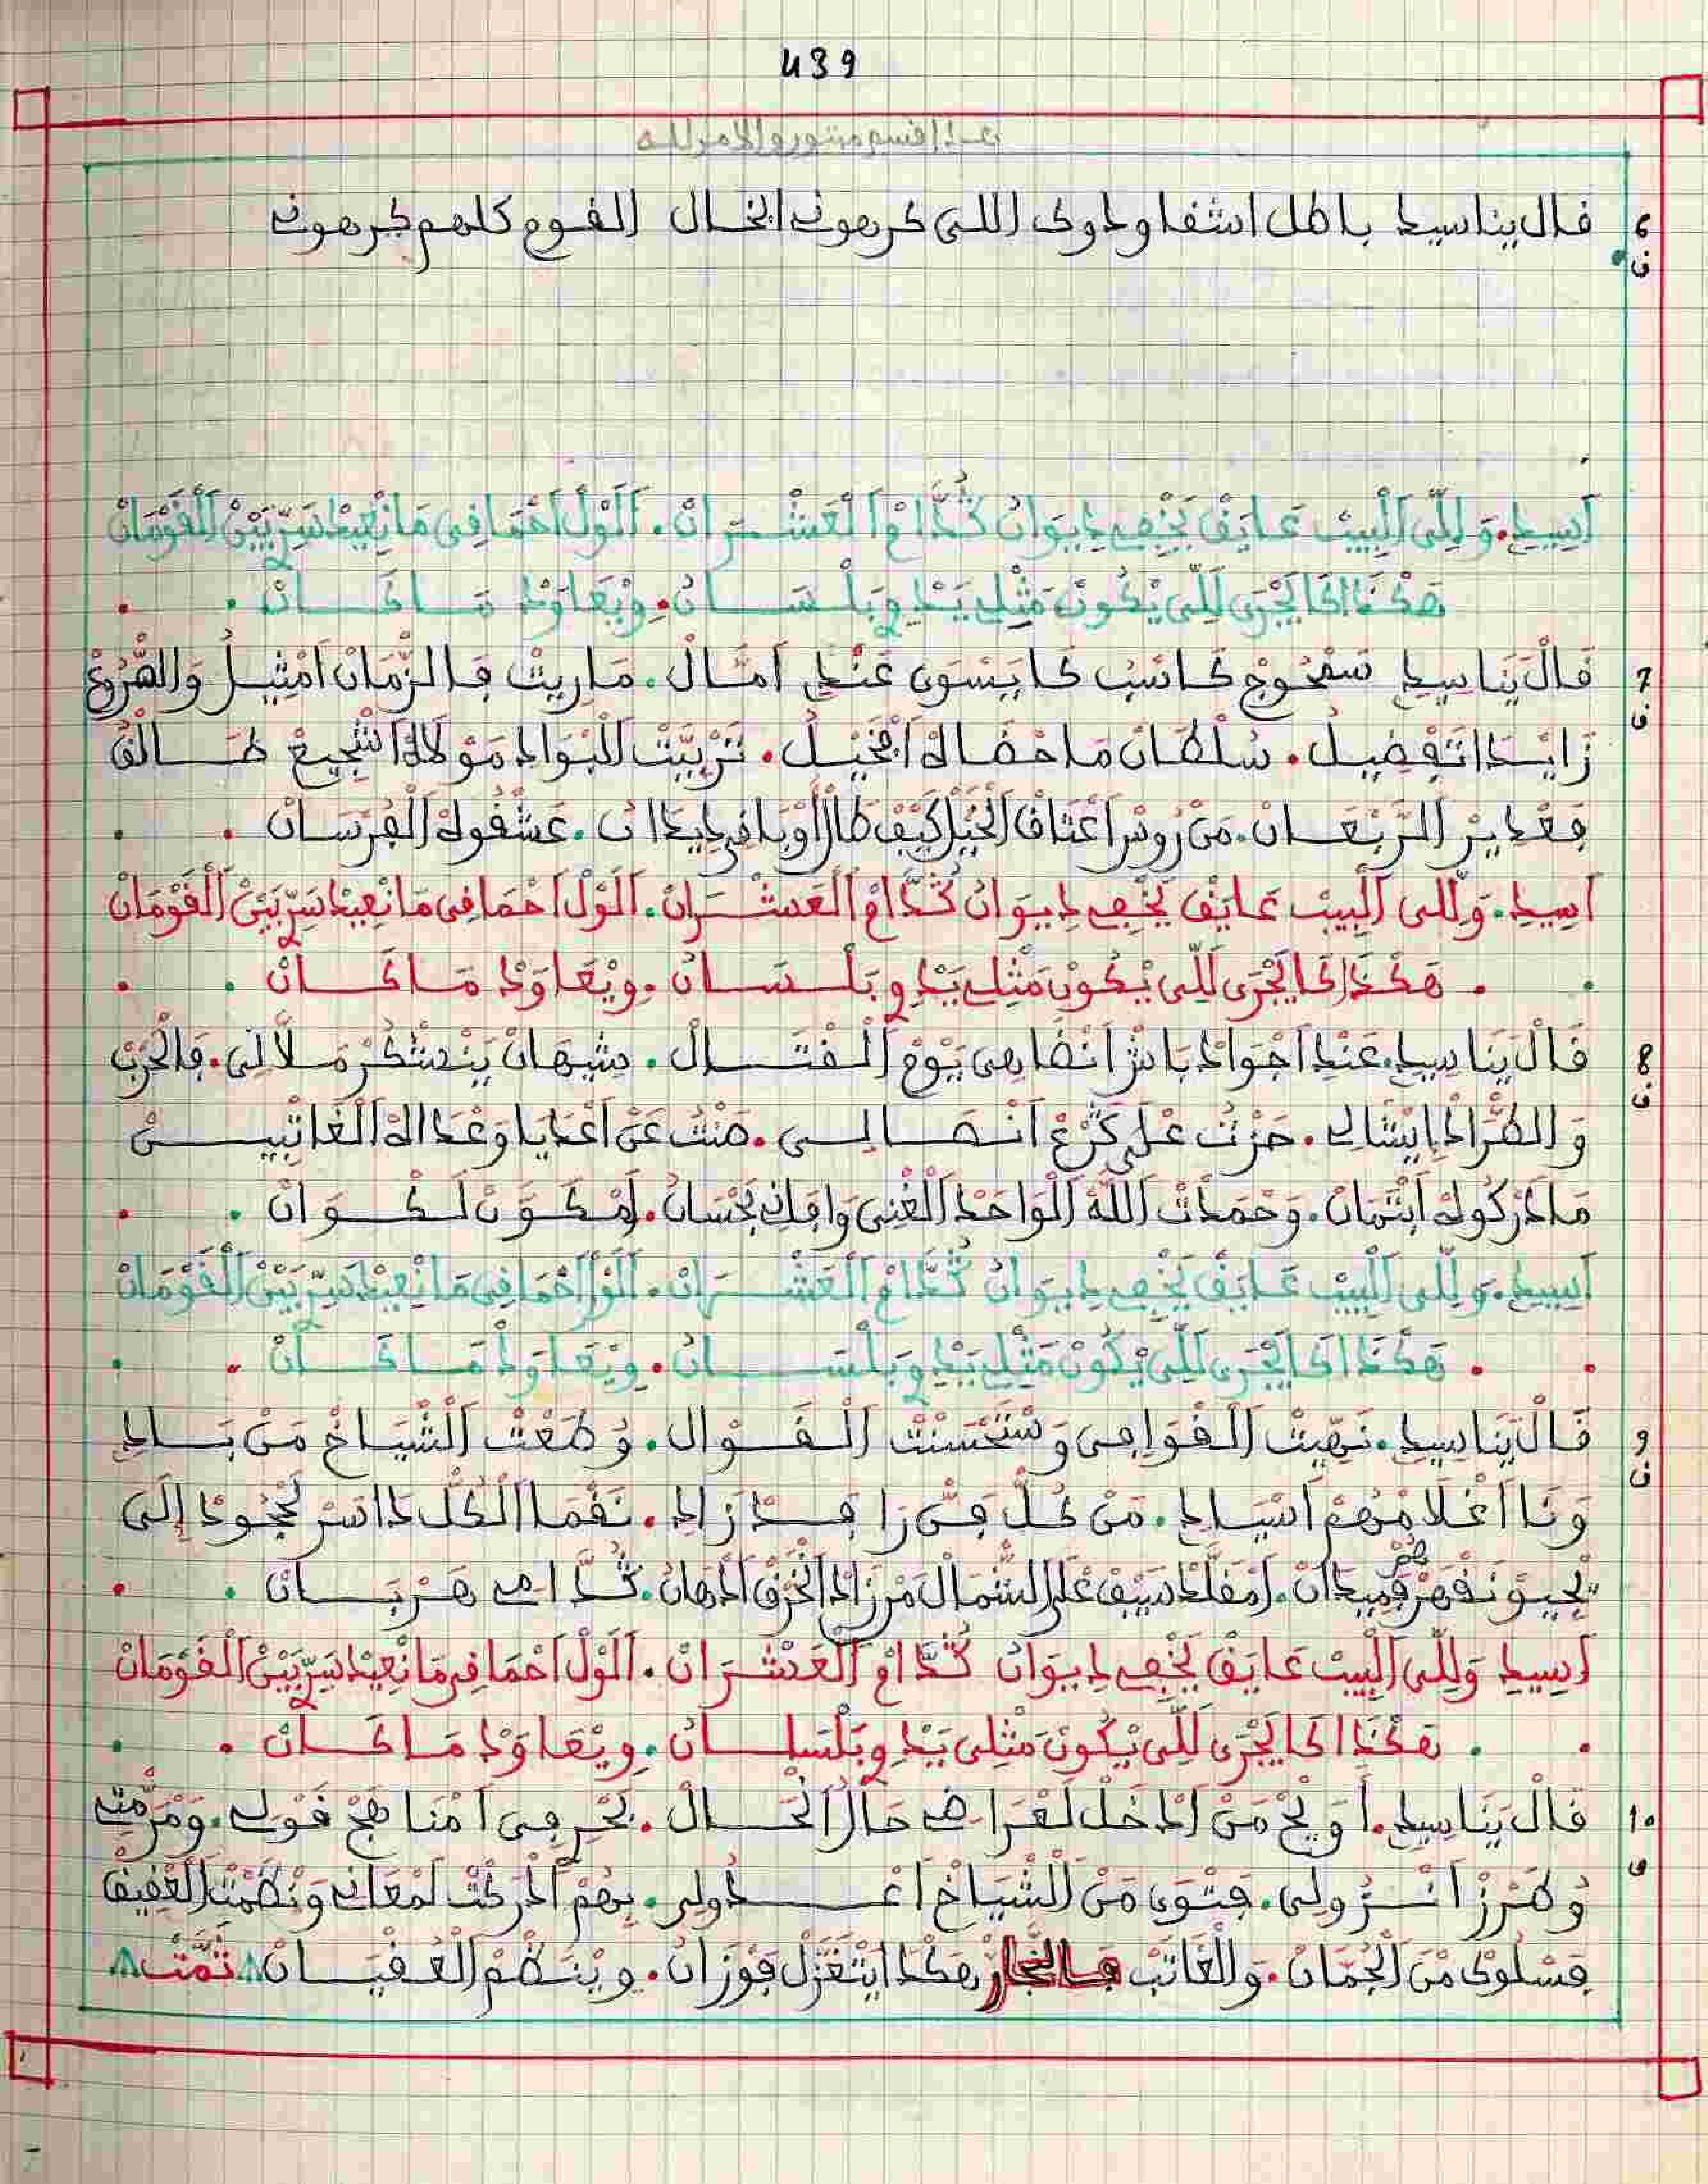 439
هذا قسم مبتور والامر لله
6 قال يناسيد باطل اشفا وداوى اللى كرهونى ابخال القوم كلهم كرهونى
ف
اَسِيدِ. وَلِلِّى اَلْبِيبْ عَايَقْ يَخْضِعِ دِيوَانْ كُدَّامْ اَلْعَشْرَانْ. اَلَوْلْ اَحْمَا فِى مَا نْعِيدْ سَرِّ بَيْنْ اَلْقَوْمَانْ
هَكْدَا كَا يَجْرَى لَلِّى يْكُونْ مَثْلِى بَيْدِ وَبَلْسَانْ. وِيْعَاوَدْ مَا كَانْ
7 قَالْ يَنَاسِيدِ كَاسْبْ كَا يَسْوَى عَنْدِ اَمْثَالْ. مَا رِيتْ فَالزّْمَانْ اَمْثِيلُ وَالصّْرُوعْ
ف
زَايَدْ اَتَفْضِيلُ. سُلْطَانْ مَا حْضَالَهْ اَفْخَيْلُ. تَرْبِيَّتْ اَلْبْوَادِ مَوْلَاهْ اَشْجِيعْ طَالْقُ
فَغْدَايَرْ اَلرَّبْعَانْ. مَنْ رُوسْ اَعْنَاقْ اَلْخَيْلْ كِيفْ طَارْ اَوْبَا فِيدِيدَانْ. عَشْقُوهْ اَلْفُرْسَانْ
اَسِيدِ. وَلِلِّى اَلْبِيبْ عَايَقْ يَخْضِعِ دِيوَانْ كُدَّامْ اَلْعَشْرَانْ. اَلَوْلْ اَحْمَا فِى مَا نْعِيدْ سَرِّ بَيْنْ اَلْقَوْمَانْ
هَكْدَا كَا يَجْرَى لَلِّى يْكُونْ مَثْلِى بَيْدِ وَبَلْسَانْ. وِيْعَاوَدْ مَا كَانْ
8 قَالْ يَنَاسِيدِ. عَنْدِ اَجْوَادْ بَاشْ اَنْضَاهِى يَوْمْ اَلْقْتَالْ. شِيهَانْ يَنْدْشْكَرْ مَلَّالِى. فَالْحَرْبْ
ف
وَالطّْرَادْ اِيْشَالِى. حَزْتْ عْلَى اَنْصَالِى. صَنْتُ عَنْ اَعْدَايَا وَعْدَاهْ اَلْغَاتْبِينْ
مَا اَدْرْكُوهْ اَبْثْمَانْ. وَحْمَدْتْ اَللَّهْ اَلْوَاحَدْ اَلْغْنِى وَافَانِى بَحْسَانُ. اَمْكَوَّنْ لَكْوَانْ
اَسِيدِ. وَلِلِّى اَلْبِيبْ عَايَقْ يَخْضِعِ دِيوَانْ كُدَّامْ اَلْعَشْرَانْ. اَلَوْلْ اَحْمَا فِى مَا نْعِيدْ سَرِّ بَيْنْ اَلْقَوْمَانْ
هَكْدَا كَا يَجْرَى لَلِّى يْكُونْ مَثْلِى بَيْدِ وَبَلْسَانْ. وِيْعَاوَدْ مَا كَانْ
9 قَالْ يَنَاسِيدِ. نَهِّيتْ اَلْقْوَافِى وَسْتَحْسَنْتْ اَلْقْوَالْ. وُطَعْتْ اَلْشْيَاخْ مَنْ بْلَادِ
ف
وَنَا اَغْلَامْهُمْ اَسْيَادِ. مَنْ كُلّْ فَنّْ رَا فَدْ زَادِ. نَقْمَا اَلْكُلّْ دَاسَرْ لَجْحُودْ اِلَى
يْجِيوْ نَقْهَرْهُمْ فَمِيدَانْ. اَمْقَلَّدْ سَيْفْ عْلَى اَلشّْمَالْ اَلْخَرْقْ اَدْهَانُ. كُدَّامِى هَرْبَانْ
اَسِيدِ وَلِلِّى اَلْبِيبْ عَايَقْ يَخْضِعِ دِيوَانْ كُدَّامْ اَلْعَشْرَانْ. اَلَوْلْ اَحْمَا فِى مَا نْعِيدْ سَرِّ بَيْنْ اَلْقَوْمَانْ
هَكْدَا كَا يَجْرَى لَلِّى يْكُونْ مَثْلِى بَيْدِ وَبَلْسَانْ. وِيْعَاوَدْ مَا كَانْ
10 قَالْ يَنَاسِيدِ. اَوَيْحْ مَنْ اَدْخَلْ لَعْرَاضِى حَالْ اَلْحَالْ. بَحْرِ فِى اَمْنَاهَجْ قَوْلِى. وَمْرَمّْتِى
ف
وُطَرْزْ اَنْزُولِى. فَتْوَى مَنْ اَلْشْيَاخْ اَعْدُولِى. بِهُمْ اَدْرَكْتْ لَمْعَانِى وَنْظَمْتْ اَلْعْقِيقْ
فَسْلُوكْ مْنَ اَلْجُمَانْ. وَالْغَاتَبْ فَالنّْجَارْ هَكْدَا اَيْتْغَزَّلْ فَوْزَانْ. وِيْنَظَّمْ اَلْعَقْيَانْ تَمَّتْ